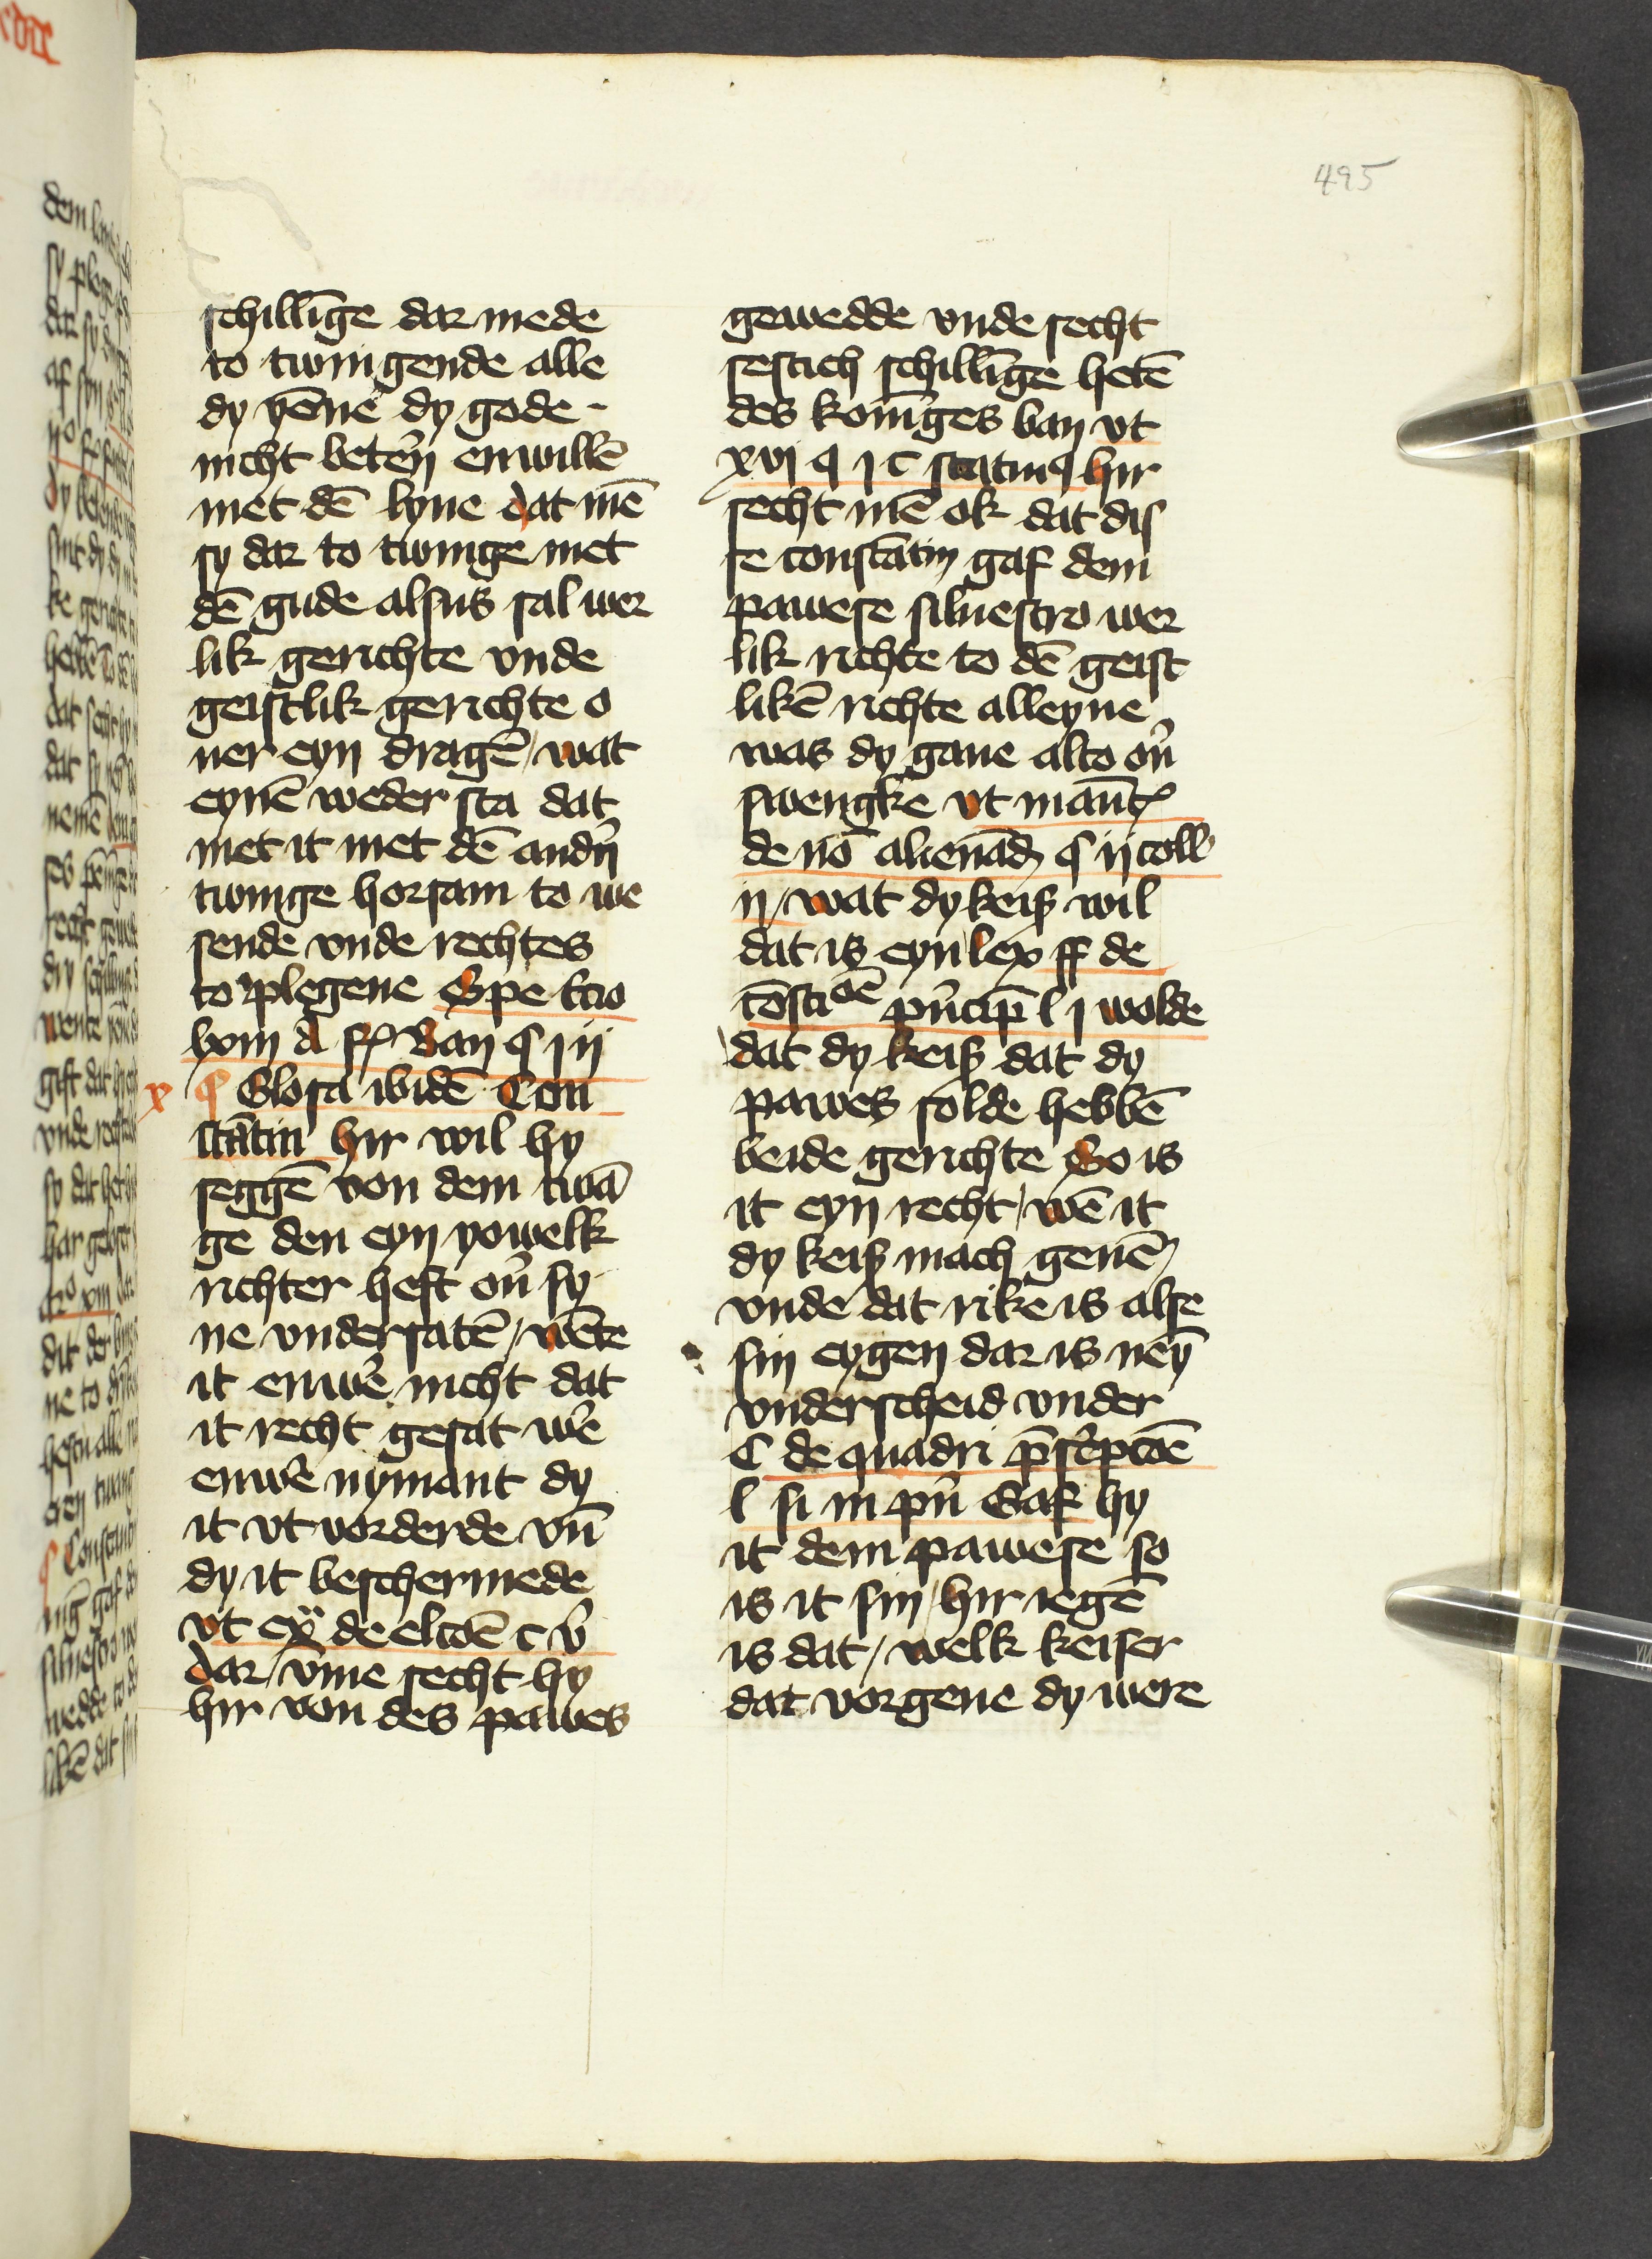 495
schillīge dar mede
to twingende alle
dy yēne dy gode
nicht betern̄ enwillē
met dē lyue dat mē
sy dar to twinge met
dē gude alsus sal wer
lik gerichte vnde
geistlik gerichte o
uer eyn dragē / wat
eynē weder sta dat
met it met dē andn̄
twinge horsam to we
sende vnde rechtes
to plegene Spe
lxiii d
¶ Glosa ibidē Con
x
stātin hir wil hy
seggē von dem twā
ge den eyn yowelk
richter heft ou̇ sy
ne vndersatē / wēte
it enwe᷑ nicht dat
it recht gesat we᷑
enwe᷑ nymant dy
it vt vorderde vn̄
dy it beschermede
vt ex̄ de elcōē c v̇
dar / vme secht hy
hir von des pawes
gewedde vnde secht
sestich schillīge hetē
des konīges ban vt
xvi q j c statim⁹ hir
secht mē ok dat dis
se constātin gaf dem
pawese siluestro wer
lik richte to dē geist
likē richte alleyne
was dy gaue alto ou̇
swengke vt
de nō alienād ¶ ij coll
ij / wat dy keiß wil
dat is eyn lex ff de
cōstiōē p̄ncip̄ l j wolde
dat dy keiß dat dy
pawes solde hebbē
beide gerichte So is
it eyn recht / wē it
dy keiß mach geuē
vnde dat rike is alse
sin eygen dar is neȳ
vnderscheid vnder
C de quadri p̄sc̄pcōē
l si in pn̄ Gaf hy
it dem pawese so
is it sin / hir iegē
is dat / welk keiser
dat vorgeue dy were